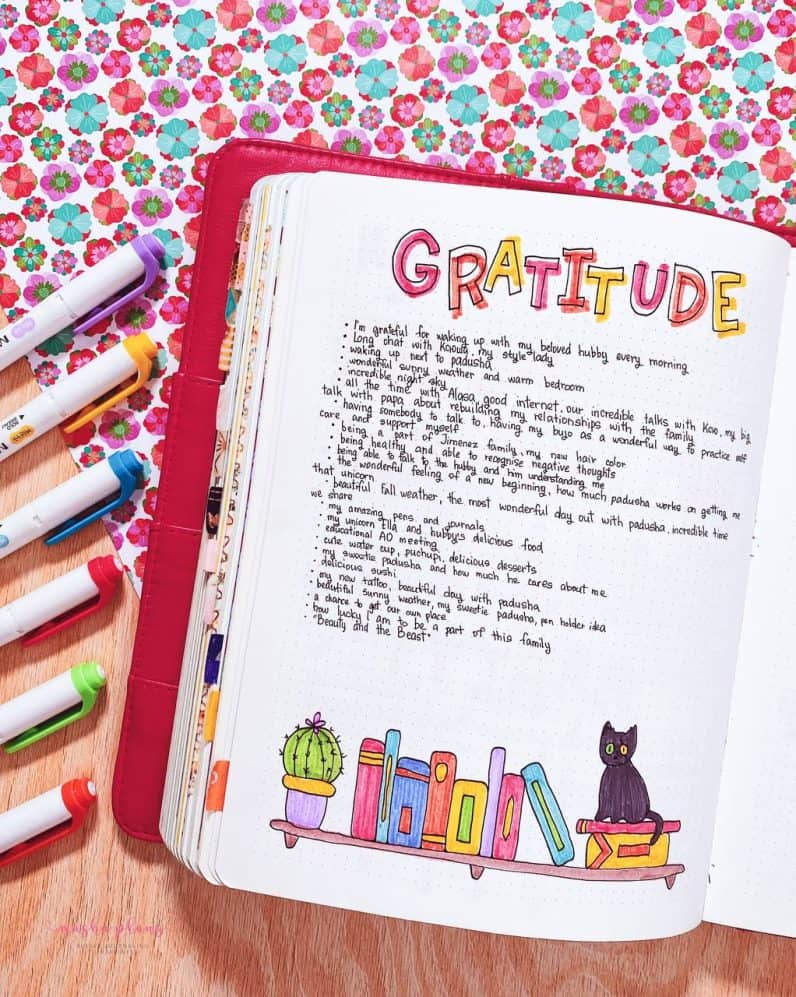 GRATITUDE
• I'm grateful for waking up with my beloved hubby every morning
• Long chat with my style lady
• waking up next to padusha
• wonderful sunny weather and warm bedroom
• incredible night sky
• all the time with good internet, our incredible talks with Koo, my big
talk with papa about rebuilding my relationships with the family
• having somebody to talk to, having my bujo as a wonderful way to practice self
care and support myself
• being a part of Jimenez family, my new hair color
• being healthy and able to recognise negative thoughts
• being able to talk to the hubby and him understanding me
• the wonderful feeling of a new beginning, how much padusha works on getting me
that unicorn
• beautiful Fall weather, the most wonderful day out with padusha, incredible time
we share
• my amazing pens and journals
• my unicorn Ella and hubby's delicious food
• educational AO meeting
• cute water cup, puchupi, delicious desserts
• my sweetie padusha and how much he cares about me
• delicious sushi
• my new tattoo, beautiful day with padusha
• beautiful sunny weather, my sweetie padusha, pen holder idea
• a chance to get our own place
• how lucky I am to be a part of this family
• "Beauty and the Beast"
masha plans